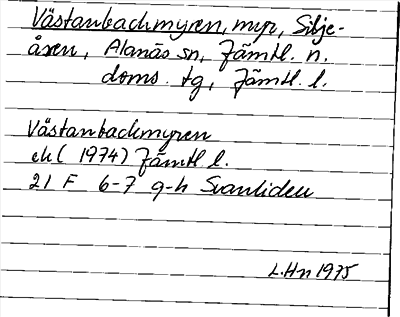 Västanbackmyren, myr, Silje-
åsen, Alanäs sn, Jämtl. n.
doms. tg, Jämtl. l.
Västanbackmyren
ek (1974) Jämtl l.
21 F 6-7 g-h Svanliden
L.Hn 1975